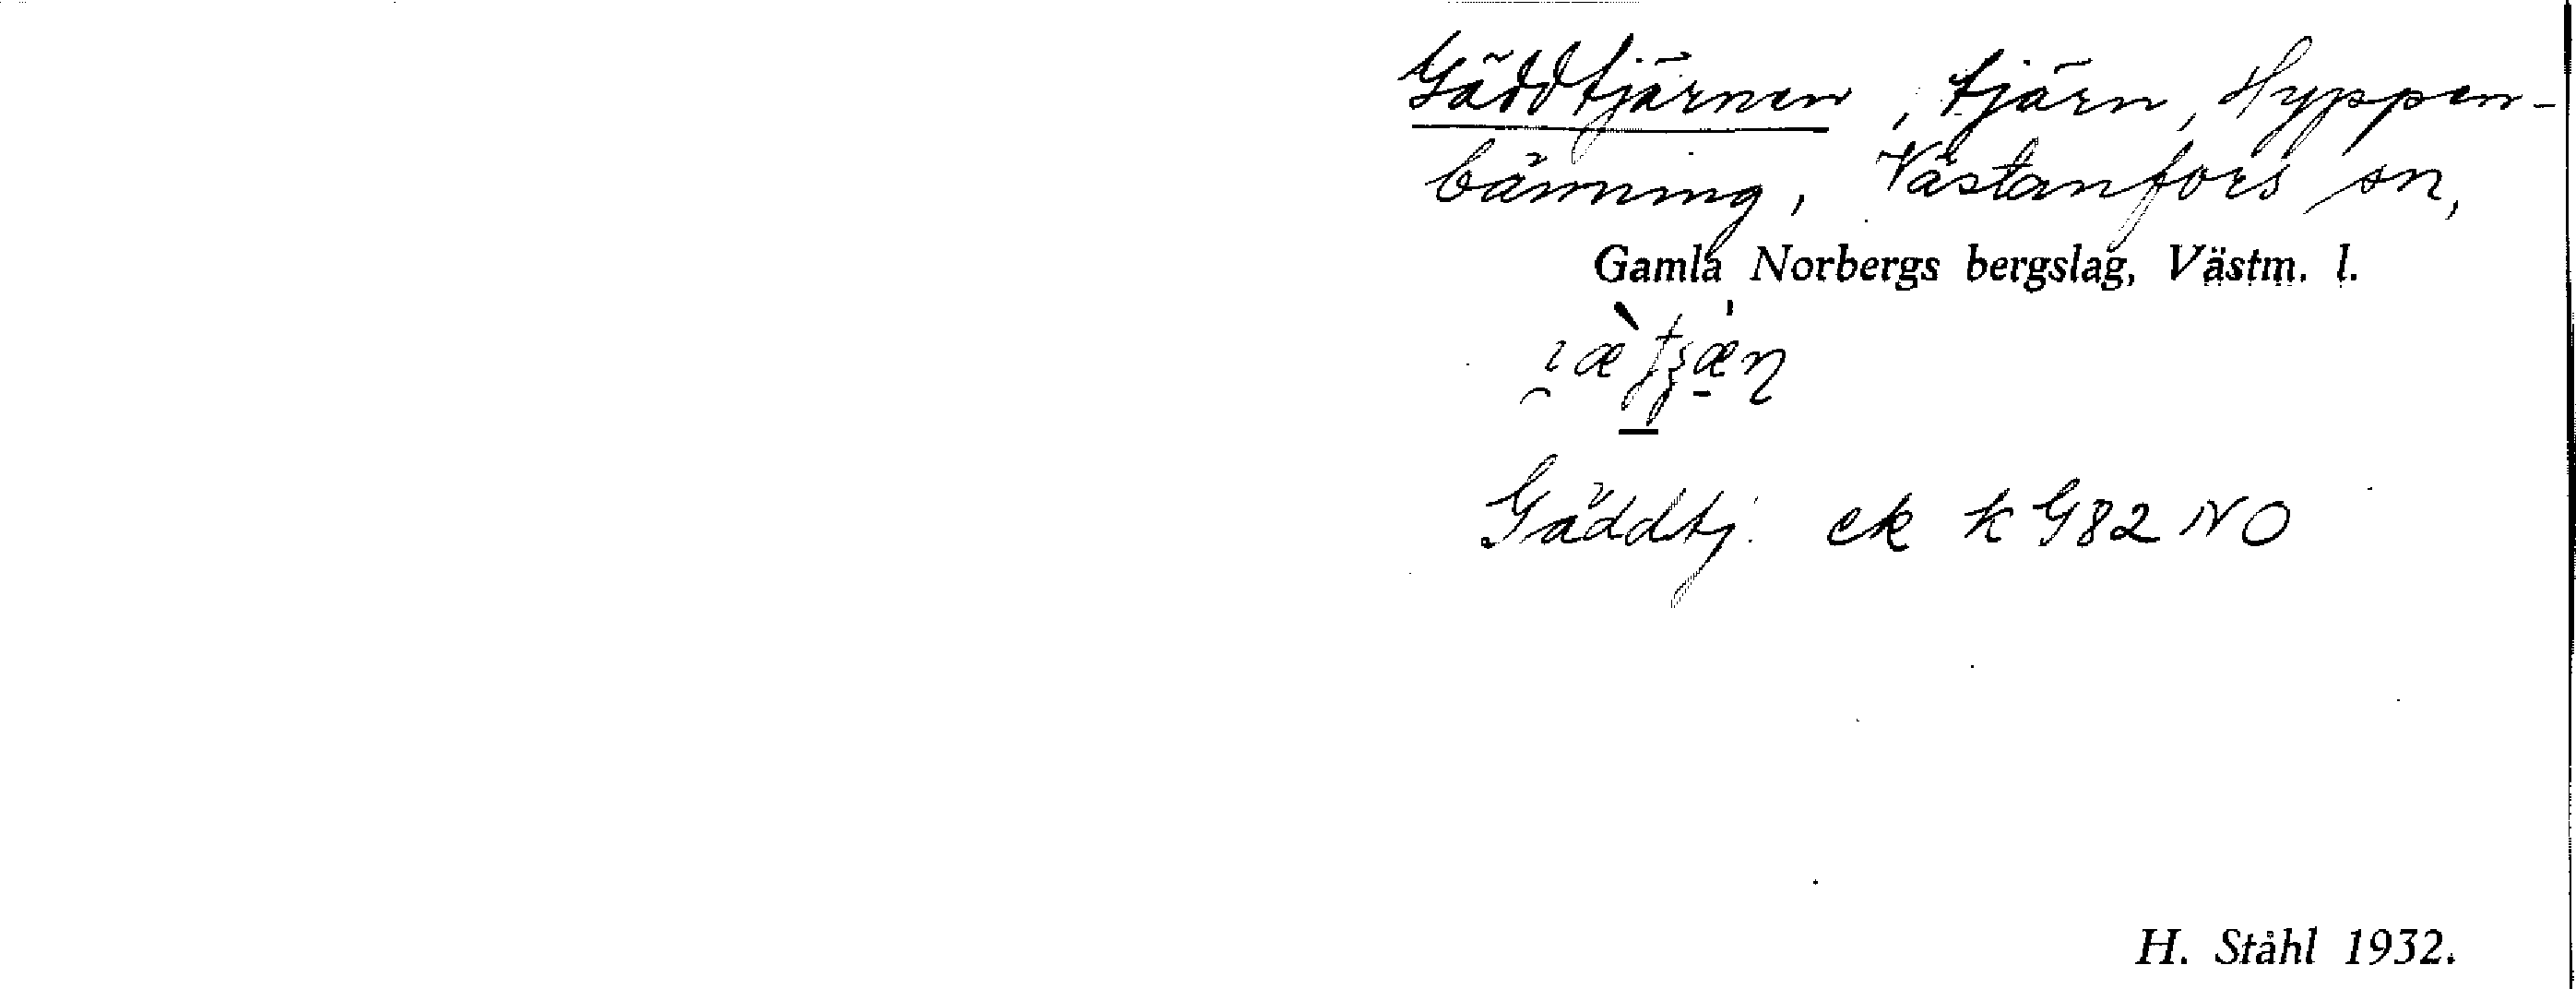 Gäddtjärnen, tjärn, Hyppen-
bänning, Västanfors sn,
Gamla Norbergs bergslag, Västm. l.
Gäddtj. ek k G82 NO
H. Ståhl 1932.